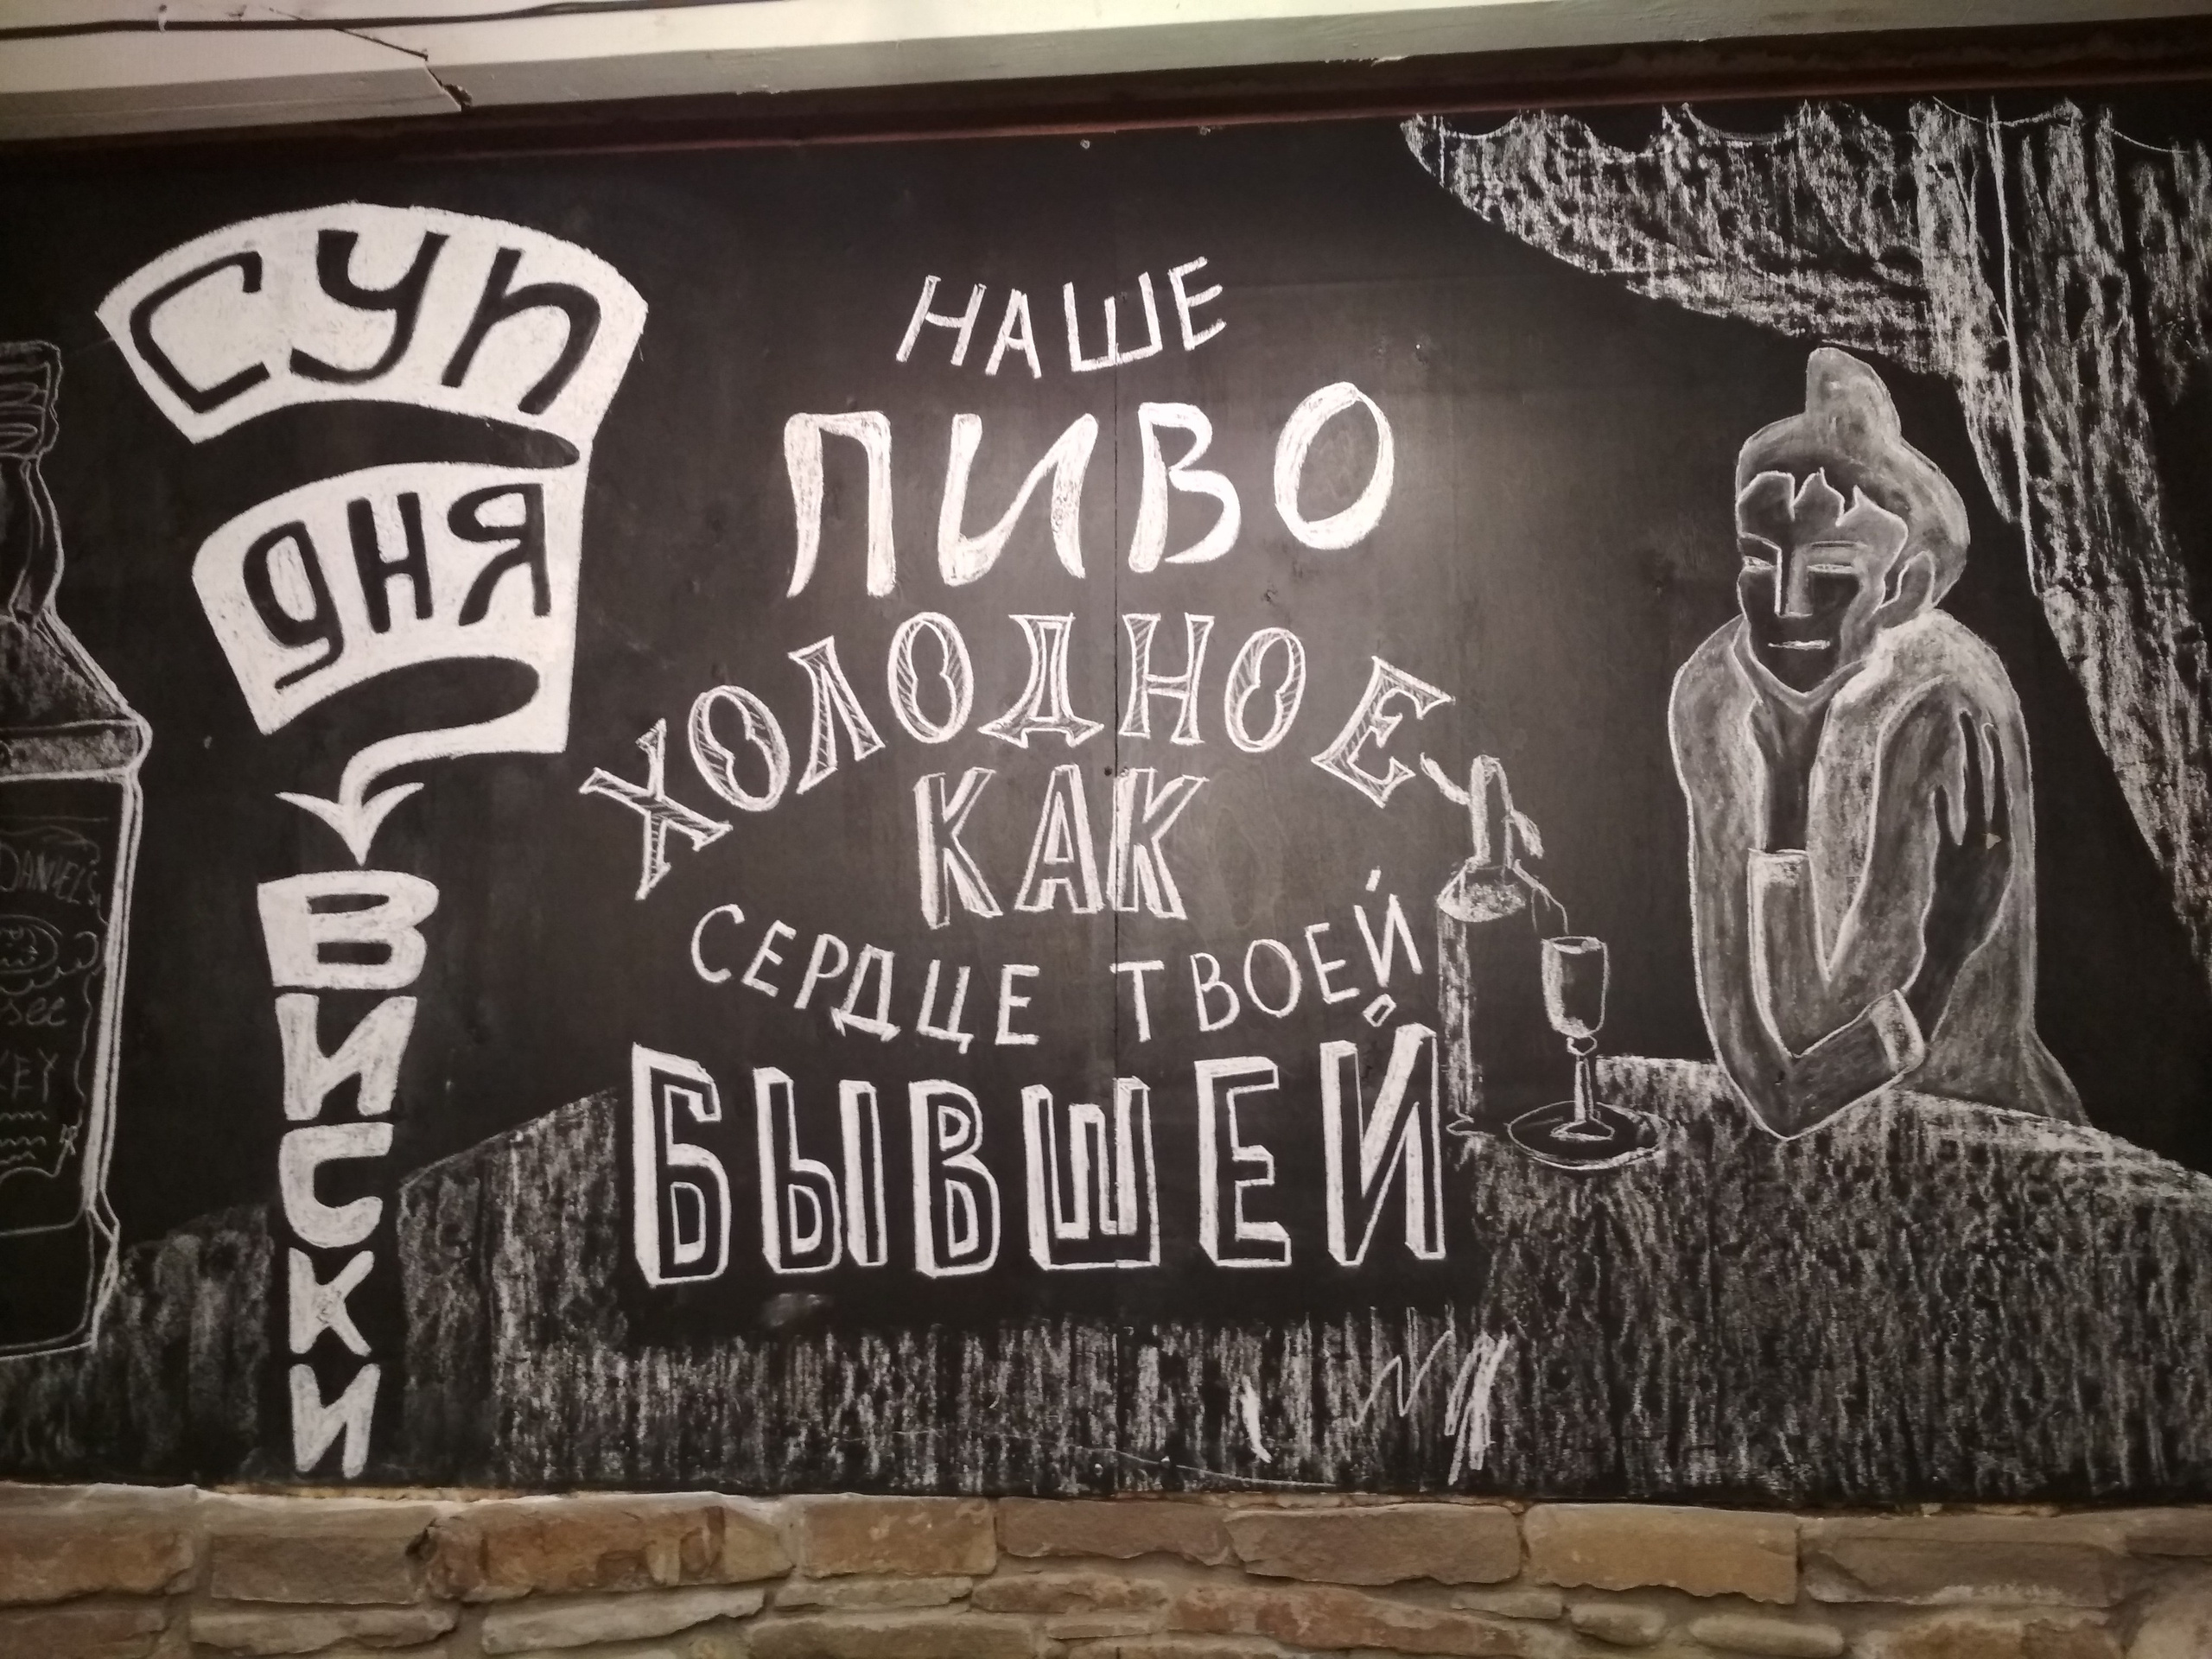 СУП
ДНЯ
ВИСКИ
НАШЕ
ПИВО
ХОЛОДНОЕ
КАК
СЕРДЦЕ ТВОЕЙ
БЫВШЕЙ
DANIEL'S